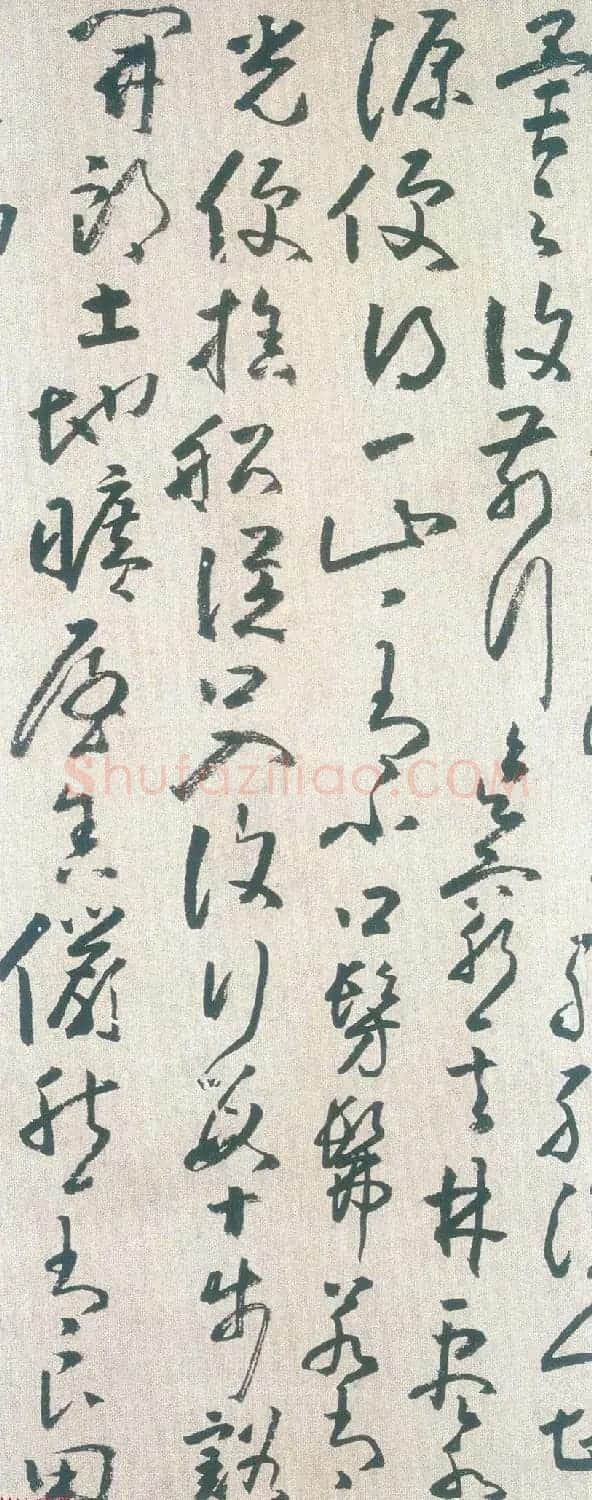 異之復前行欲窮其林盡水
源便得一山〻有小口髣髴若有
光便捨船從口入復行數十步豁
開朗土地曠屋舍儼然有良田
Shufaziliao.COM